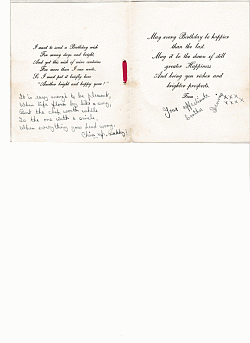 I want to send a Birthday wish
For sunny days and bright,
And yet this wish of mine contains
Far more than I can write,
So I must put it briefly here
"Another bright and happy year!"
It is easy enough to be pleasant,
When life flows by like a song,
But the chap worth while
Is the one with a smile,
When everything goes dead wrong.
Chin up
May every Birthday be happier
than the last.
May it be the dawn of still
greater Happiness
And bring you riches and
brighter prospects.
From
Your affectionate
xxx
xxxx